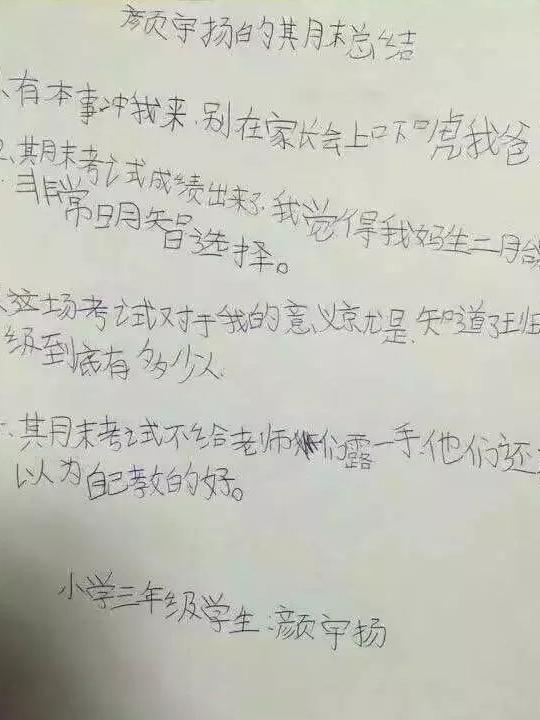 颜宇扬的其月末总结
、有本事冲我来,别在家长会上吓唬我爸
2、其月末考试成绩出来了.我觉得我妈生二月台
非常明智选择。
、这场考试对于我的意义京尤是.知道了王圧
级到底有多少人.
、其月末考试不给老师们露一手.他们还
以为自己教的好。
小学三年级学生:颜宇扬